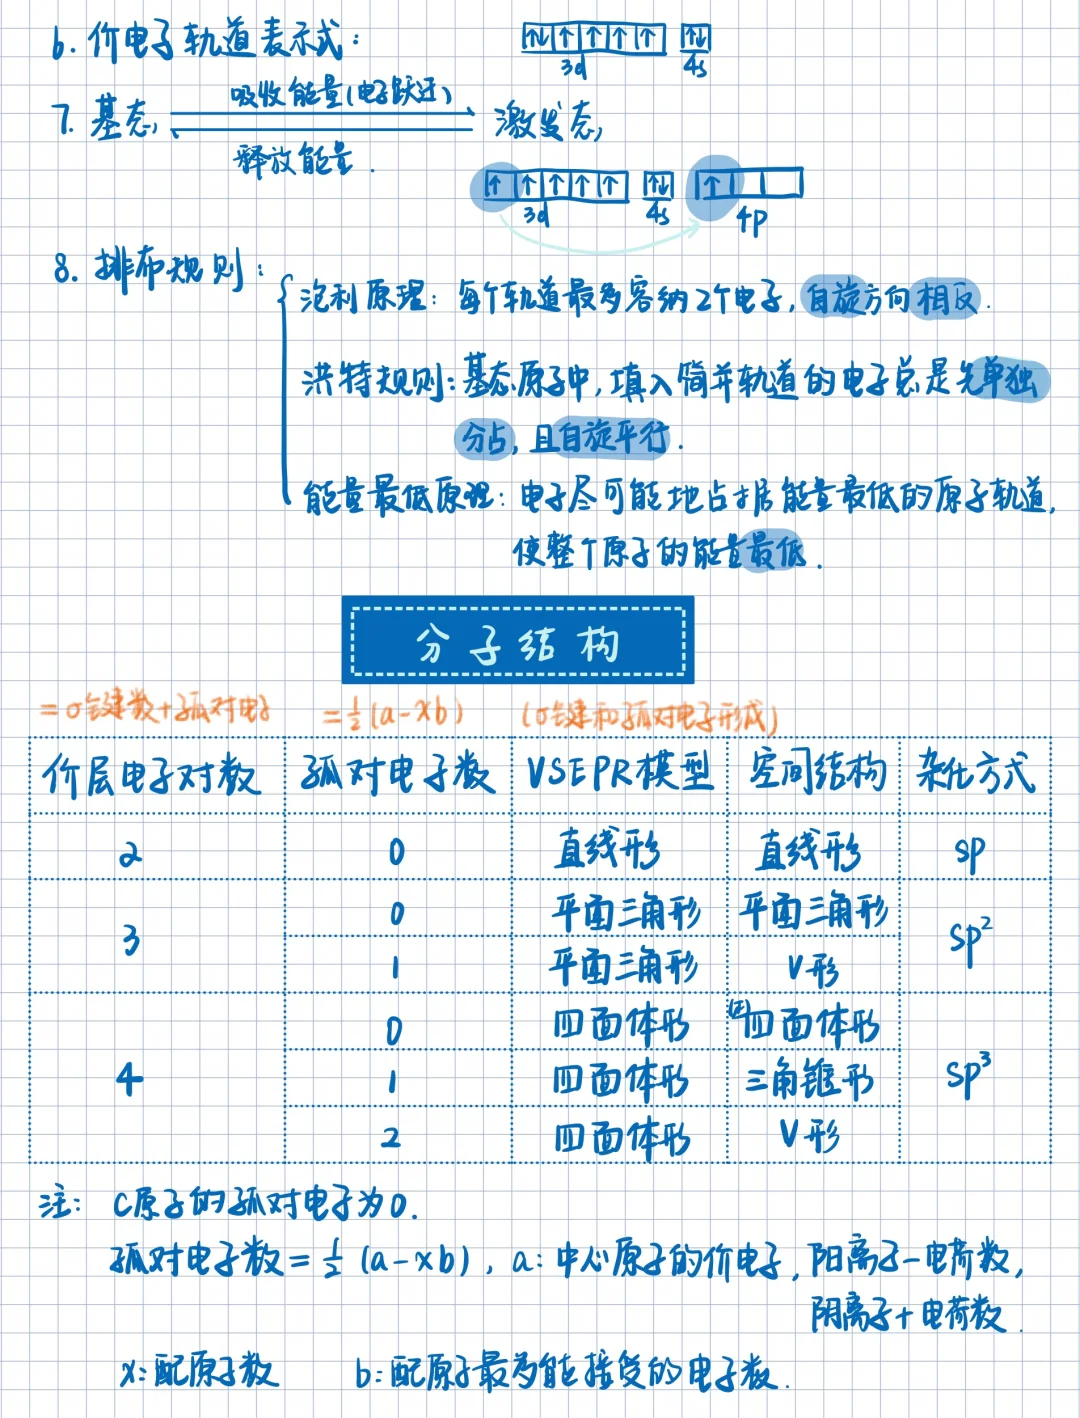 6. 价电子轨道表示式: ↑↓ ↑ ↑ ↑ ↑ ↑↓
3d 4s
吸收能量(电子跃迁)
7. 基态, 激发态,
释放能量.
↑ ↑ ↑ ↑ ↑ ↑↓ ↑
3d 4s 4p
8. 排布规则:
泡利原理: 每个轨道最多容纳2个电子, 自旋方向相反.
洪特规则: 基态原子中, 填入简并轨道的电子总是先单独
分占, 且自旋平行.
能量最低原理: 电子尽可能地占据能量最低的原子轨道,
使整个原子的能量最低.
分子结构
=σ键数+孤对电子 =½(a-xb) (σ键和孤对电子形成)
价层电子对数 孤对电子数 VSEPR模型 空间结构 杂化方式
2 0 直线形 直线形 sp
3 0 平面三角形 平面三角形 sp²
1 平面三角形 V形
4 0 四面体形 (正)四面体形 sp³
1 四面体形 三角锥形
2 四面体形 V形
注: C原子的孤对电子为0.
孤对电子数=½(a-xb), a: 中心原子的价电子, 阳离子-电荷数,
阴离子+电荷数.
x: 配原子数 b: 配原子最多能接受的电子数.